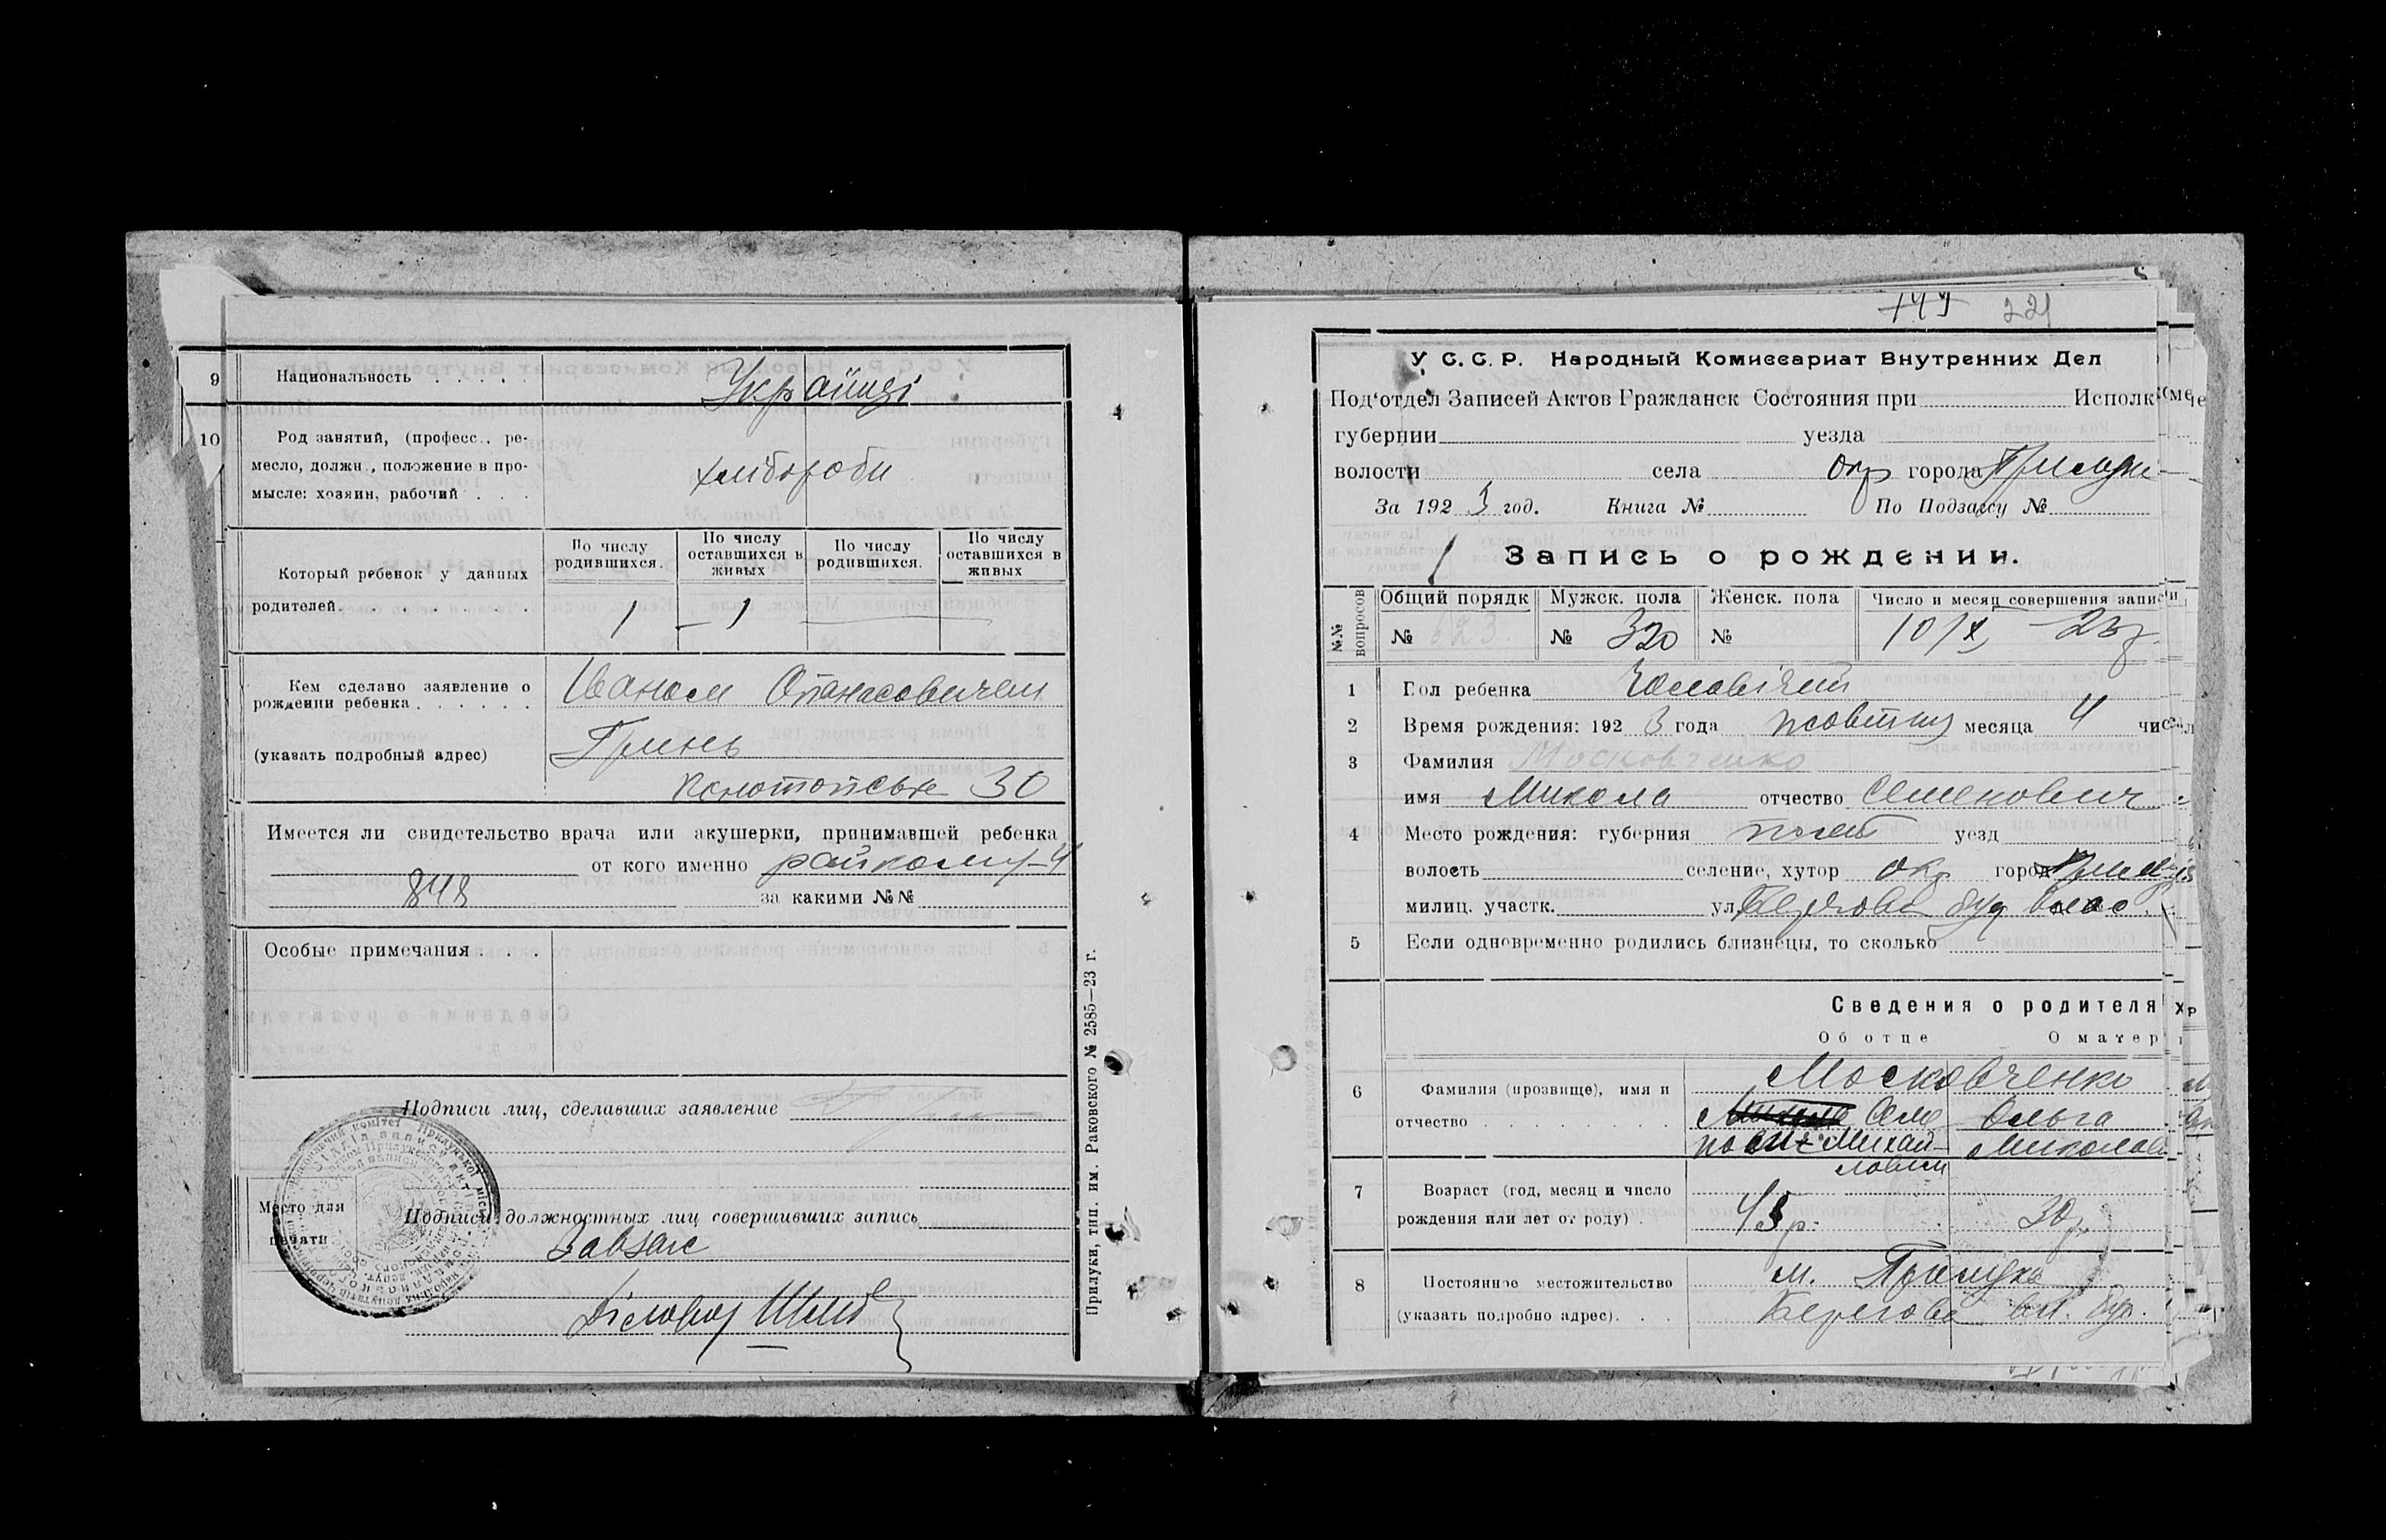 9 Национальность . . . . . Українці
10 Род занятий, (професс., ре-
месло, должн., положение в про-
мысле: хозяин, рабочий . . .
хлібороби
Который ребенок у данных
родителей. . . . . . . .
По числу родившихся.
По числу оставшихся в живых
По числу родившихся.
По числу оставшихся в живых
1 – 1
Кем сделано заявление о
рождении ребенка . . . . . .
(указать подробный адрес)
Іваном Опанасовичем
Гринь
Конотопська 30
Имеется ли свидетельство врача или акушерки, принимавшей ребенка
от кого именно райкому-4
848 за какими №№
Особые примечания . . .
Подписи лиц, сделавших заявление
Место для
печати
Подписи должностных лиц совершивших запись
Завзагс
Діловод
Прилуки, тип. им. Раковского № 2585—23 г.
149 221
У С.С.Р. Народный Комиссариат Внутренних Дел
Под'отдел Записей Актов Гражданск Состояния при Исполк
губернии уезда
волости села окр города Прилуки
За 1923 год. Книга № По Подзагсу №
1 Запись о рождении.
№№ вопросов
Общий порядк Мужск. пола Женск. пола Число и месяц совершения записи
№ 623 № 320 № 10/X – 23 р.
1 Пол ребенка Чоловічий
2 Время рождения: 1923 года жовтня месяца 4 числ
3 Фамилия Московченко
имя Микола отчество Семенович
4 Место рождения: губерния Полт уезд
волость селение, хутор окр город Прилуки
милиц. участк. ул. Берегова буд влас.
5 Если одновременно родились близнецы, то сколько
Сведения о родителях
Об отце О матер
6 Фамилия (прозвище), имя и
отчество . . . . . . . .
Московченко
Семе Ольга
Михай- Миколаев
лович
7 Возраст (год, месяц и число
рождения или лет от роду) .
43 р. 30 р.
8 Постоянное местожительство
(указать подробно адрес). . .
м. Прилука
Берегова вл. буд.